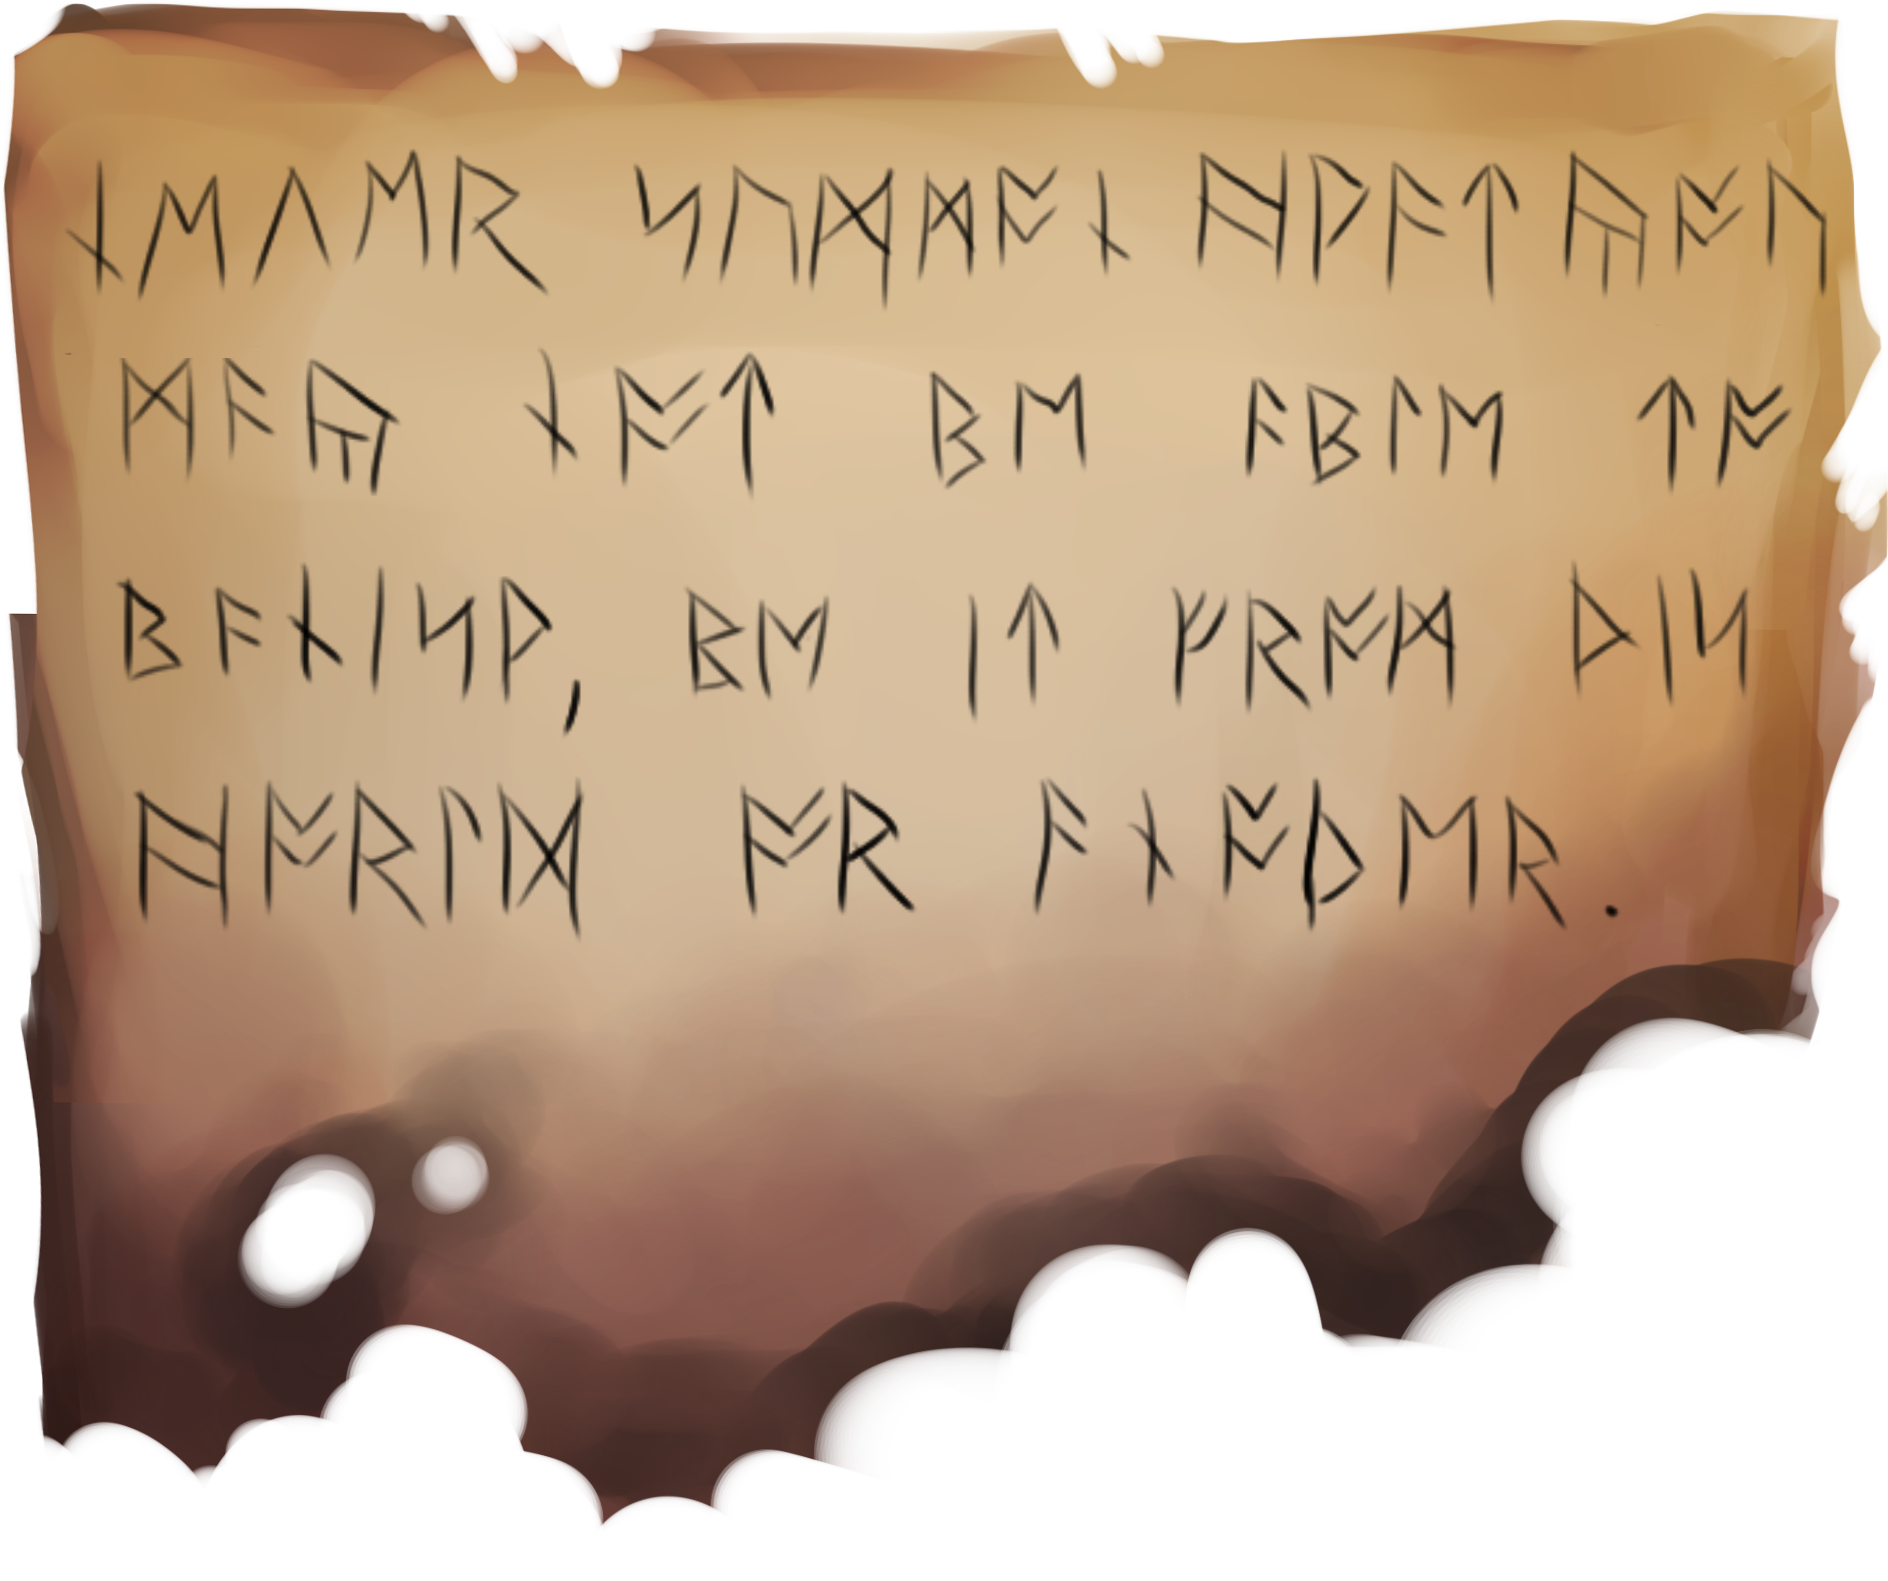 ᚾᛖᚢᛖᚱ ᛋᚢᛗᛗᚩᚾ ᚻᚹᚨᛏ ᚣᚩᚢ
ᛗᚨᚣ ᚾᚩᛏ ᛒᛖ ᚨᛒᛚᛖ ᛏᚩ
ᛒᚨᚾᛁᛋᚹ, ᛒᛖ ᛁᛏ ᚠᚱᚩᛗ ᚦᛁᛋ
ᚻᚩᚱᛚᛞ ᚩᚱ ᚨᚾᚩᚦᛖᚱ.